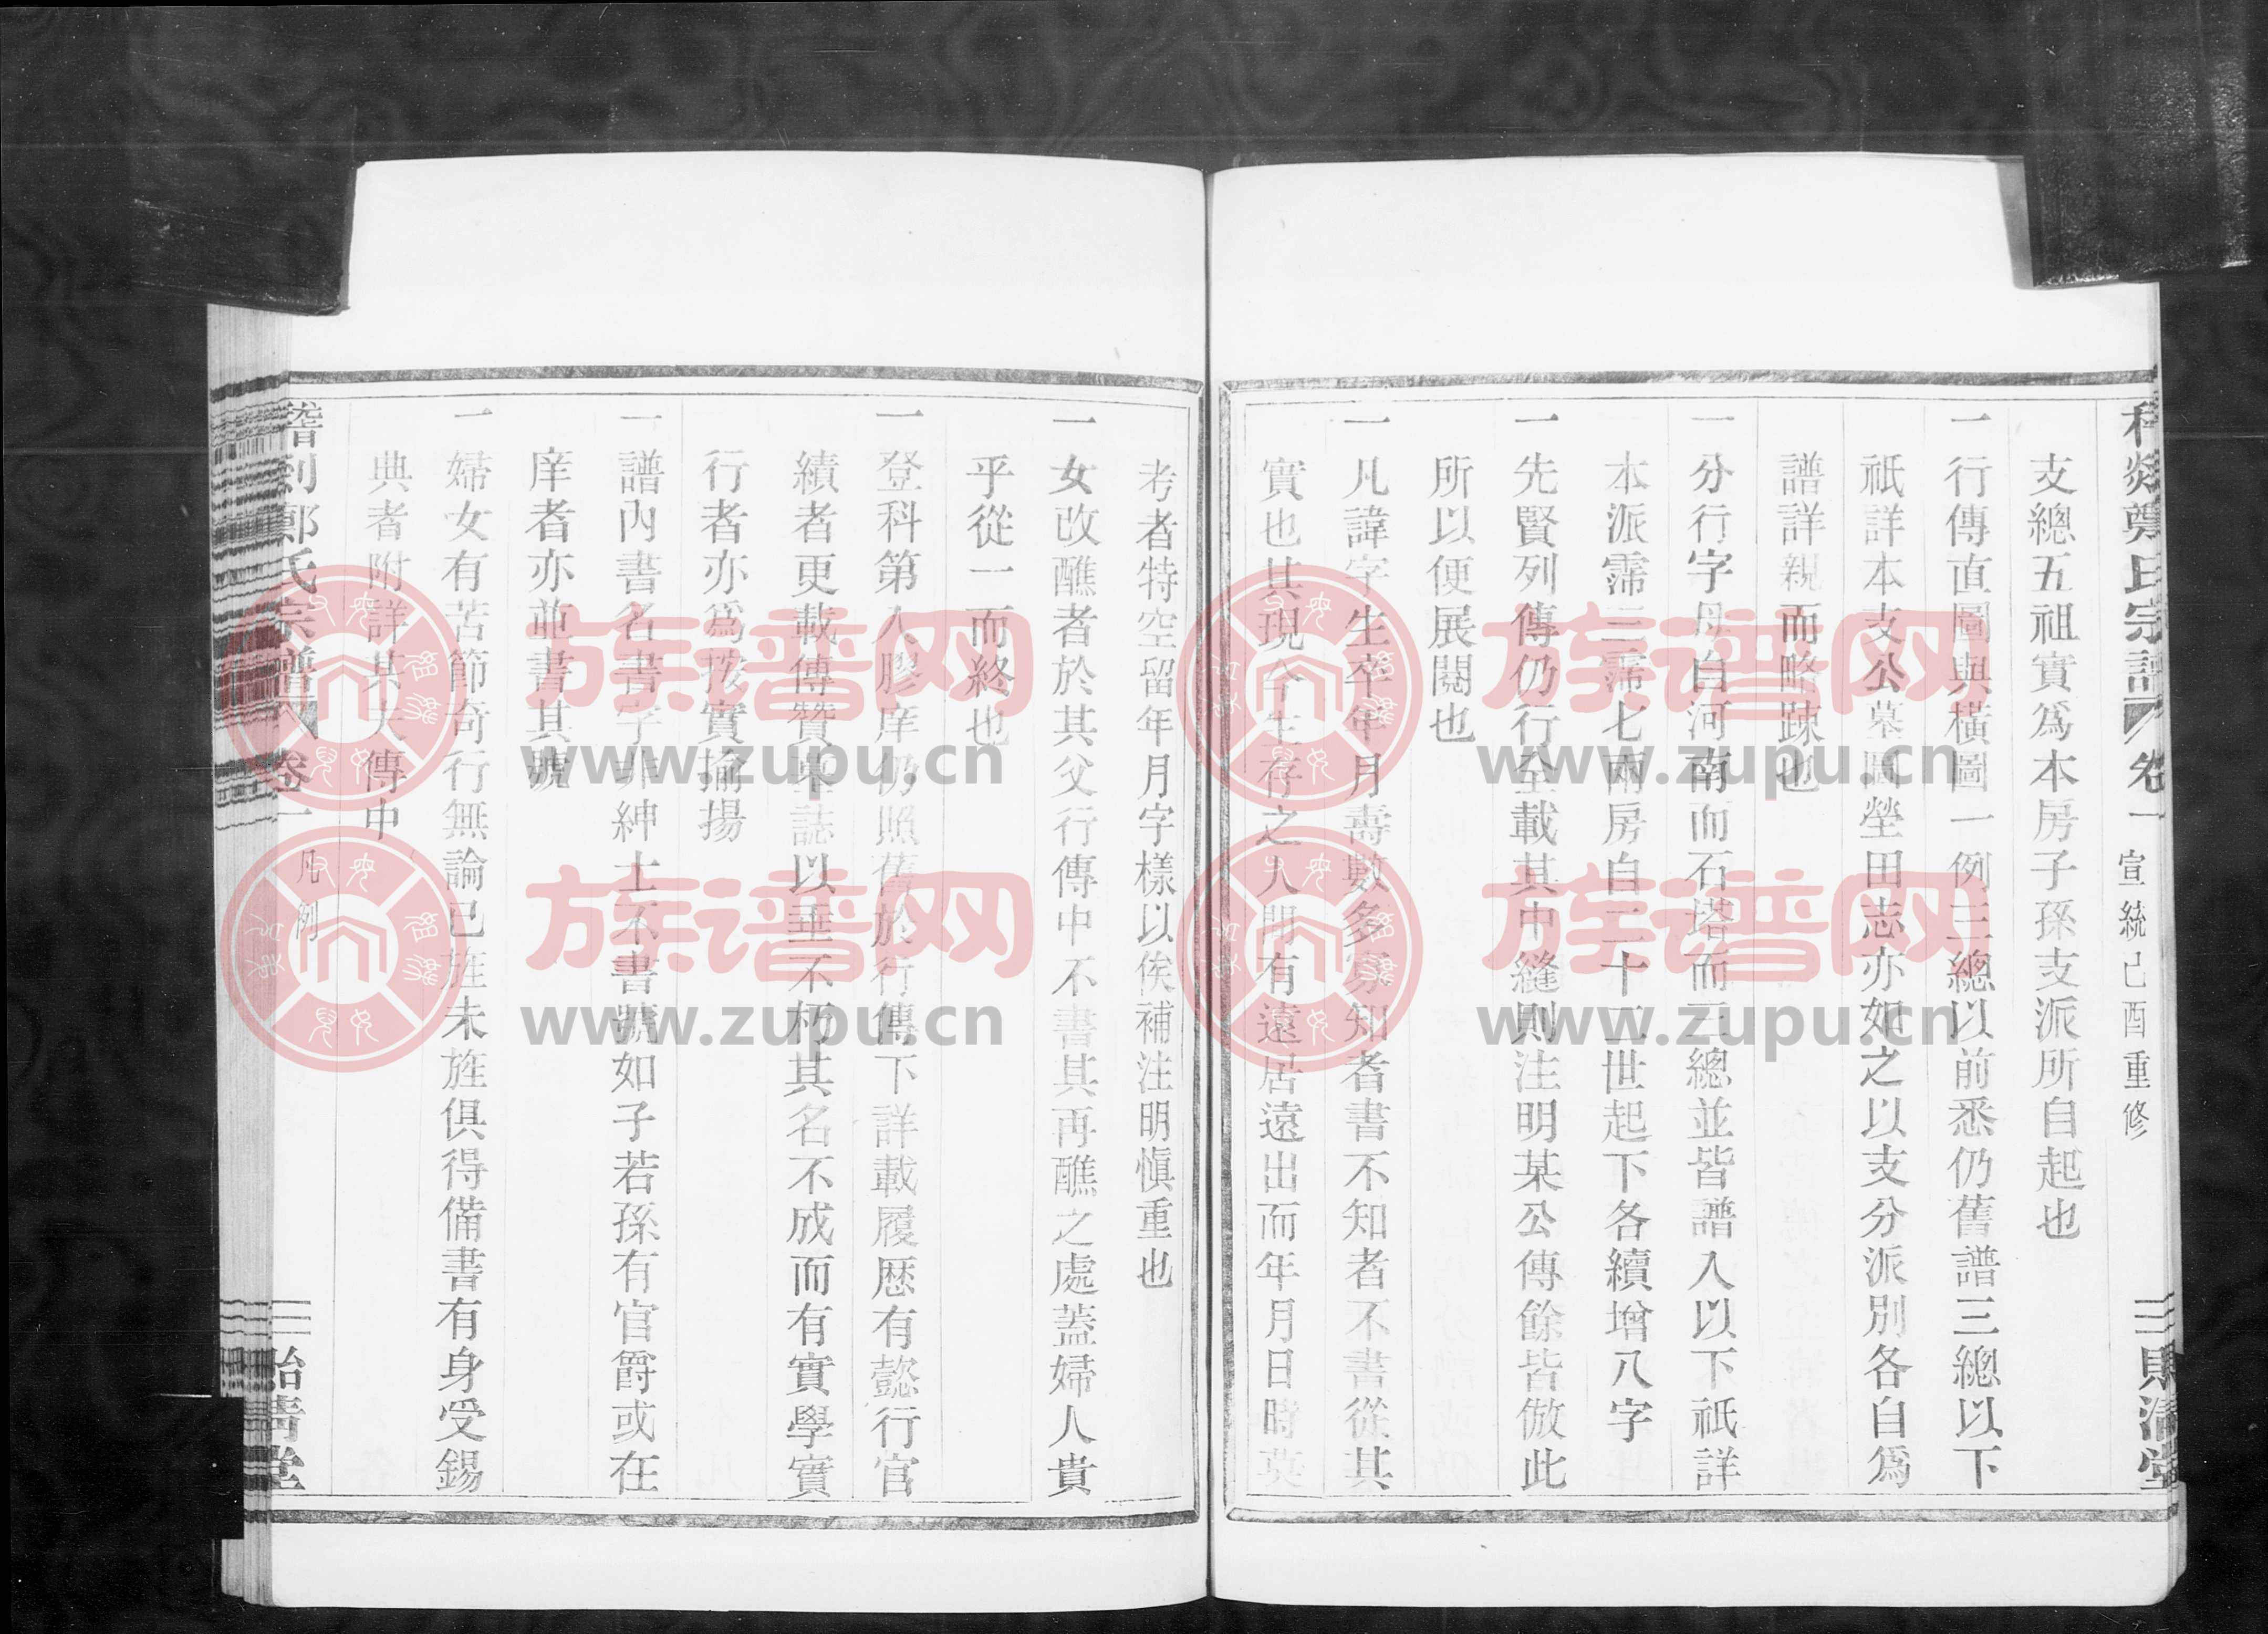 鄭氏宗譜 卷一 宣統己酉重修 三 貽清堂
支總五祖實爲本房子孫支派所自起也
一行傳直圖與橫圖一例三總以前悉仍舊譜三總以下
祇詳本支公墓圖塋田志亦如之以支分派別各自爲
譜詳親而略踈也
一分行字母自河南而石塔而三總並皆譜入以下祇詳
本派霈三霈七兩房自二十二世起下各續增八字
一先賢列傳仍行全載其中縫則注明某公傳餘皆倣此
所以便展閱也
一凡諱字生卒年月壽數多寡知者書不知者不書從其
實也其現今生存之人間有遠居遠出而年月日時莫
考者特空留年月字樣以俟補注明愼重也
一女改醮者於其父行傳中不書其再醮之處蓋婦人貴
乎從一而終也
一登科第人膠庠仍照舊於行傳下詳載履歷有懿行官
績者更載傳贊畢誌以垂不朽其名不成而有實學實
行者亦爲按實揄揚
一譜內書名書字非紳士不書號如子若孫有官爵或在
庠者亦並書其號
一婦女有苦節奇行無論已旌未旌俱得備書有身受錫
典者附詳其夫傳中
剡鄭氏宗譜 卷一 凡例 三 貽清堂
族谱网
www.zupu.cn
族谱网
www.zupu.cn
族谱网
www.zupu.cn
族谱网
www.zupu.cn